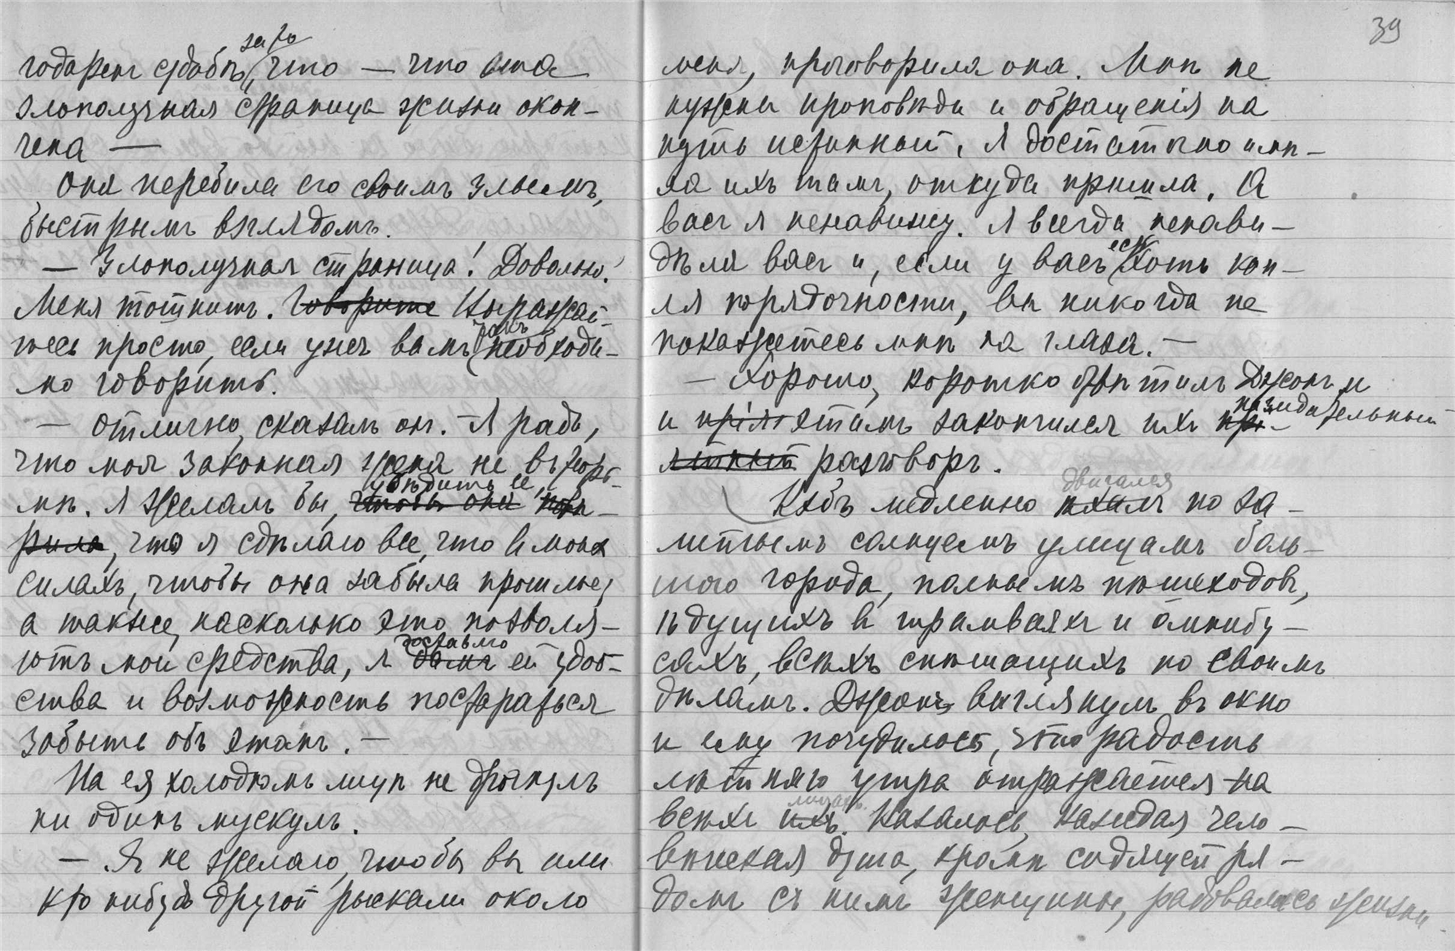 за то
годарен судьбѣ, что — что эта
злополучная страница жизни окон-
чена —
Она перебила его своимъ злымъ,
быстрымъ взглядомъ.
— Злополучная страница! Довольно!
Меня тошнитъ. Говорите Выражай-
тесь просто, если ужъ вамъ такъ необходи-
мо говорить.
— Отлично, сказалъ он. — Я радъ,
что моя законная жена не въ тюрь-
мѣ. Я желалъ бы, чтобы она убѣдить ее, повѣ-
рила, что я сдѣлаю все, что в моих
силахъ, чтобы она забыла прошлое,
а также, насколько это позволя-
ютъ мои средства, я дамъ доставлю ей удоб-
ства и возможность постараться
забыть объ этомъ. —
На ея холодномъ лицѣ не дрогнулъ
ни одинъ мускулъ.
— Я не желаю, чтобы вы или
кто нибудь другой рыскали около
39
меня, проговорила она. Мнѣ не
нужны проповѣди и обращенія на
путь истинный. Я достаточно имѣ-
ла ихъ тамъ, откуда пришла. А
васъ я ненавижу. Я всегда ненави-
дѣла васъ и, если у васъ есть хоть кап-
ля порядочности, вы никогда не
покажетесь мнѣ на глаза. —
— Хорошо, коротко отвѣтилъ Джонъ и
и этимъ закончился ихъ прі- назидательный
ятный разговоръ.
Кэбъ медленно ѣхалъ двигался по за-
литымъ солнцемъ улицамъ боль-
шого города, полнымъ пѣшеходовъ,
ѣдущихъ в трамваяхъ и омнибу-
сахъ, всѣхъ спѣшащихъ по своимъ
дѣламъ. Джонъ выглянулъ въ окно
и ему почудилось, что радость
лѣтняго утра отражается на
всѣхъ ихъ лицахъ. Казалось, каждая чело-
вѣческая душа, кромѣ сидящей ря-
домъ съ нимъ женщины, радовалась жизни